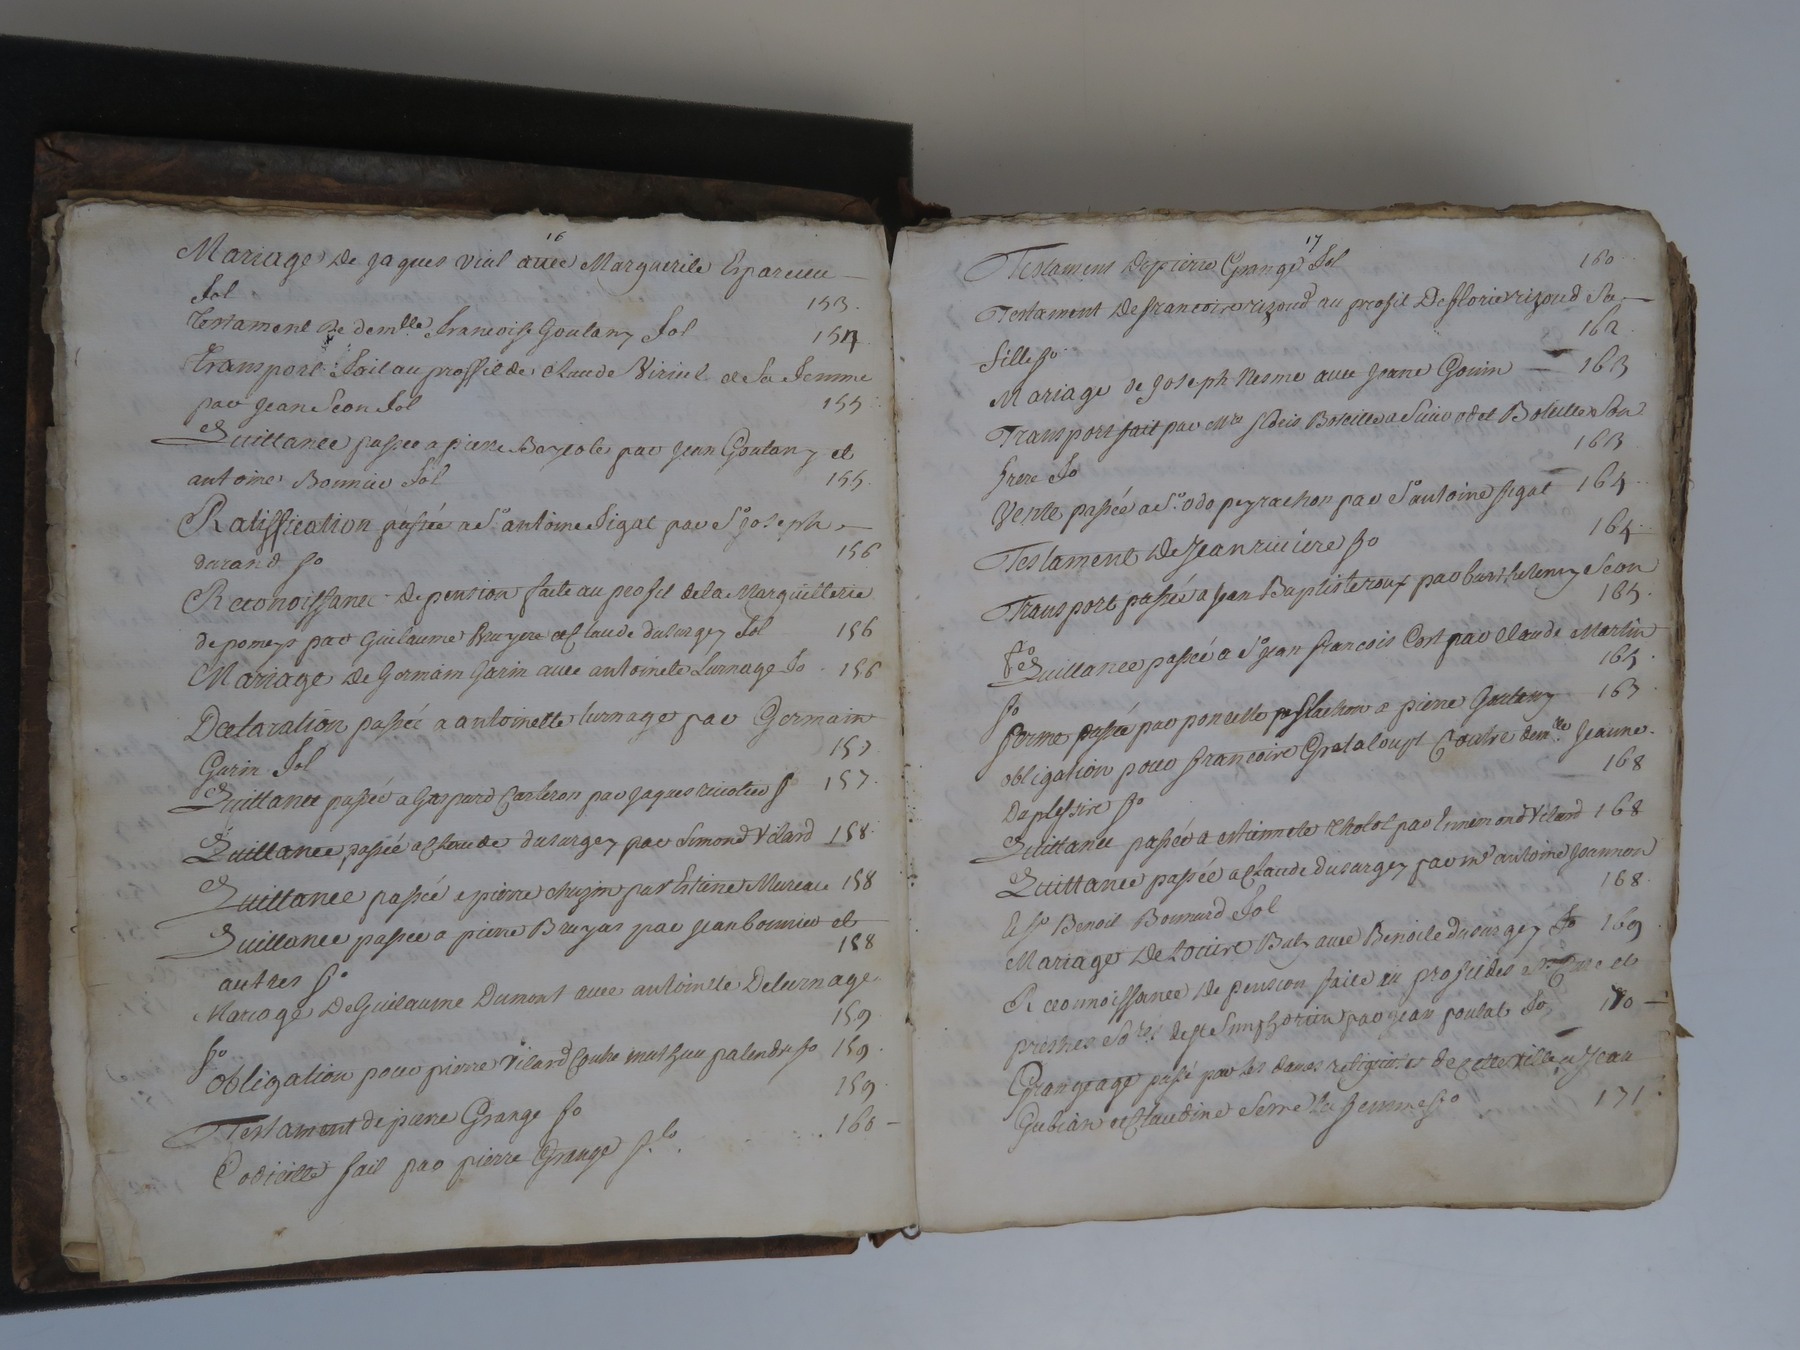 16
Mariage de jaques vial avec Marguerite Esparceu
fol 153.
Testament de dem.lle francoise Goutany fol 154
Transport fait au proffit de claude Viriel et sa femme
par jean Seon fol 155
Quittance passée a pierre Bayeole par jean Goutany et
antoine Bonnier fol 155.
Ratiffication passée a Sr. antoine figat par Sr joseph
durand fo 156
Reconoissance de pension faite au profit de la Marguillerie
de pomeys par Guilaume Bruyere et Claude dusurgey fol 156
Mariage de Germain Garin avec antoinete Lurnage fo 156
Declaration passée a antoinette lurnage par Germain
Garin fol 157
Quittance passée a Gaspard Carteron par jaques f 157.
Quittance passée a Claude dusurgey par Simond Vilard 158.
Quittance passée a pierre chuzin par Estiene Mureau 158
Quittance passee a pierre Bruyas par jean bonnier et
autres fo 158
Mariage De Guilaume Dumont avec antoinete Delurnage
fo 159
obligation pour pierre Vilard Contre mathieu palandre fo 159.
Testament de pierre Grange fo 159
Codicille fait par pierre Grange f.lo 160
17
Testament de pierre Grange fol 160
Testament de francoise rizoud au profit De florie rizoud sa
fille fo 162
Mariage de joseph Nesme avec jeane Gouin 163
Transport fait par Mre Boteille a Sieur odet Boteille son
frere fo 163
Vente passée a Sr. odo peyrachon par Sr antoine figat 164
Testament de jean riviere fo 164
Transport passée a jean Baptiste roux par barthelemy Seon
fo 165.
Quittance passée a Sr jean francois Cost par Claude Martin
fo 165.
ferme passée par poncette a pierre Goutany 167
obligation pour francoise Grataloup Contre dem.lle jeanne
Daplessire fo 168
Quittance passée a estiennete tholot par Ennemond Vilard 168
Quittance passée a Claude dusurgey par mr antoine joannon
et Sr Benoit Bonnard fol 168.
Mariage de Louire Baly avec Benoite dusurgey fo 169
Reconnoissance de pension faite au profit des Srs Curé et
prestres de st Simphorien par jean poulat fo 170
Grangeage passé par les dames religieuses de cette ville a jean
Gubian et Claudine Serre sa femme fo 171